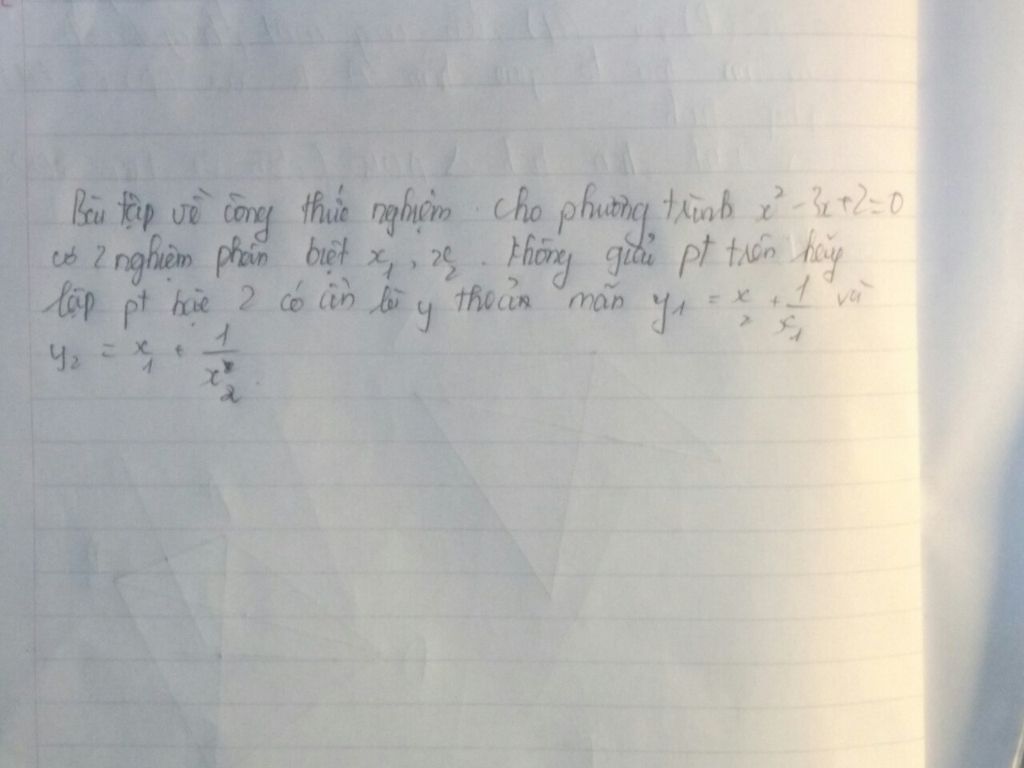 Bài tập về công thức nghiệm. Cho phương trình x² - 3x + 2 = 0
có 2 nghiệm phân biệt x₁, x₂. Không giải pt trên hãy
lập pt bậc 2 có ẩn là y thoản mãn y₁ = x₂ + 1/x₁ và
y₂ = x₁ + 1/x₂